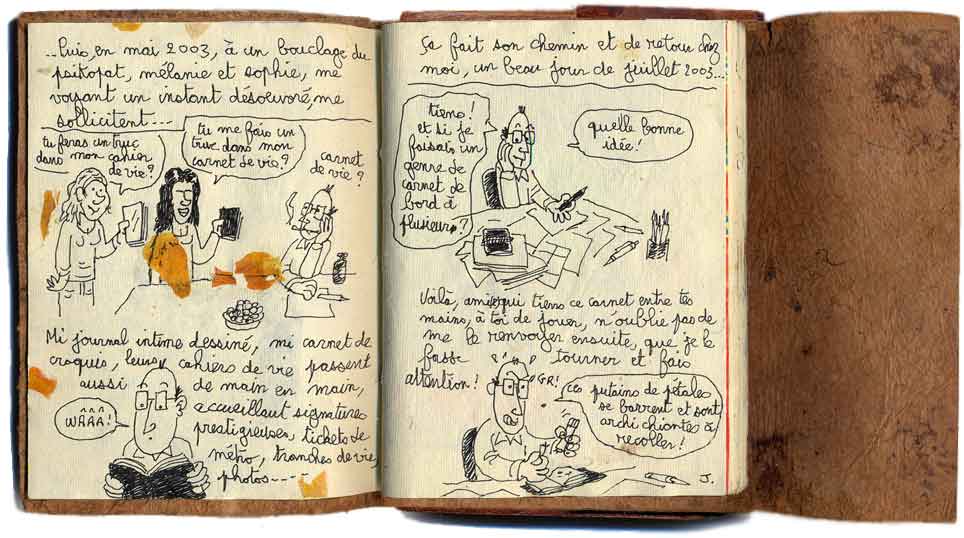 ...Puis, en mai 2003, à un bouclage du
psikopat, mélanie et sophie, me
voyant un instant désoeuvré, me
sollicitent...
tu feras un truc
dans mon cahier
de vie?
tu me fais un
truc dans mon
carnet de vie?
carnet
de vie?
Mi journal intime dessiné, mi carnet de
croquis, leurs cahiers de vie passent
aussi de main en main,
accueillant signatures
prestigieuses, tickets de
métro, tranches de vie,
photos...
WÂÂÂ!
Ça fait son chemin et de retour chez
moi, un beau jour de juillet 2003...
tiens!
et si je
faisais un
genre de
carnet de
bord à
plusieurs?
quelle bonne
idée!
Voilà, ami, qui tiens ce carnet entre tes
mains, à toi de jouer, n'oublie pas de
me le renvoyer ensuite, que je le
fasse tourner et fais
attention!
GR!
ces putains de pétales
se barrent et sont
archi chiantes à
recoller!
J.